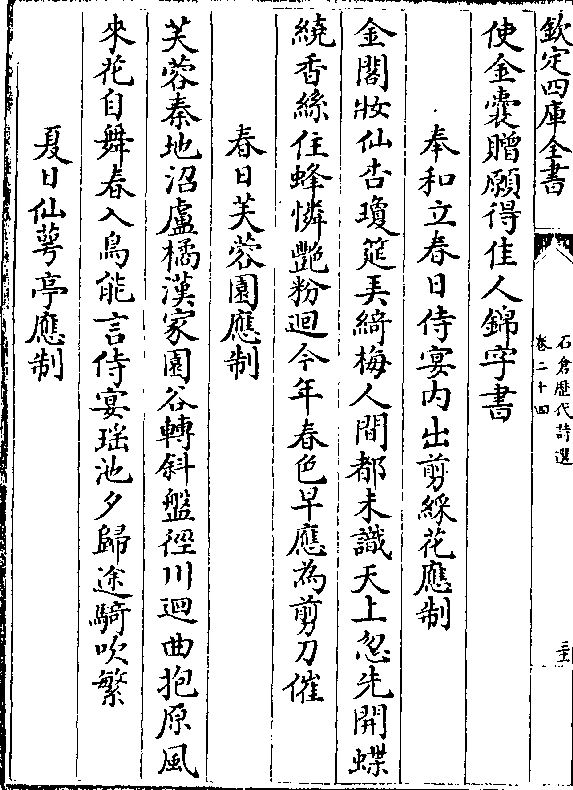 欽定四庫全書
石倉歴代詩選
卷二十四
使金嚢贈願得佳人錦字書
奉和立春日侍宴内出剪綵花應制
金閣妝仙杏瓊筵美綺梅人間都未識天上忽先開蝶
繞香絲住蜂憐艷粉迴今年春色早應為剪刀催
春日芙蓉園應制
芙蓉秦地沼盧橘漢家園谷轉斜盤徑川迴曲抱原風
來花自舞春入鳥能言侍宴瑶池夕歸途騎吹繁
夏日仙萼亭應制